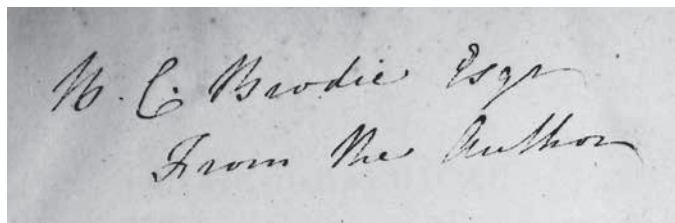 W. C. Brodie Esqr
From the Author